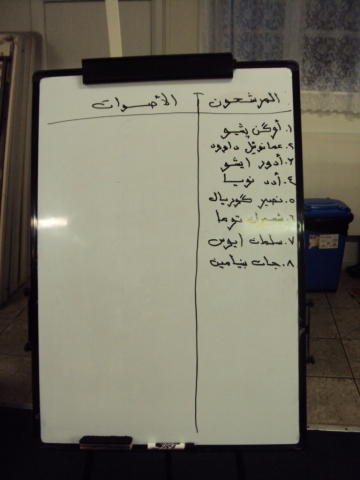 المرشحون الأصوات
١. أوكن بثيو
٢. عمانوئيل داوود
٣. أدور ايشو
٤. أدد نويسا
٥. نصير كوريال
٦. توما
٧. سلمان ايوب
٨. جان بنيامين